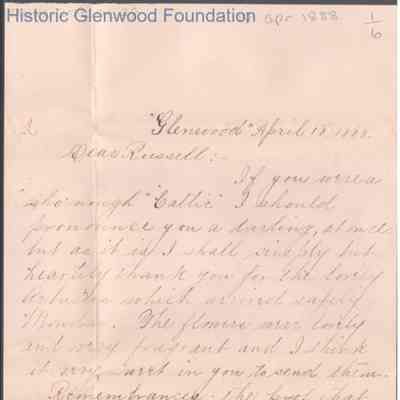 Historic Glenwood Foundation
apr. 1888
1/6
"Glenwood" April 18 1888.
Dear Russell:-
If you were a
"sho nough" "Cattie" I should
pronounce you a darling, at once
but as it is I shall simply but
heartily thank you for the lovely
Arbutus which arrived safely
Monday. The flowers were lovely
and very fragrant and I think
it very sweet in you to send them.
Remembrances the